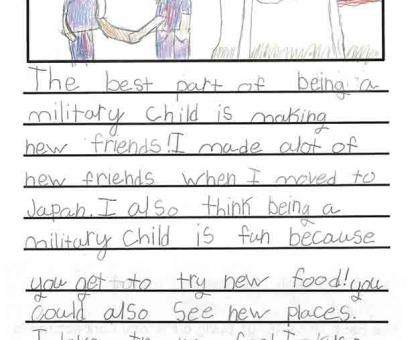 The best part of being a
military child is making
new friends! I made alot of
new friends when I moved to
Japan. I also think being a
military child is fun because
you get to to try new food! you
could also see new places.
I